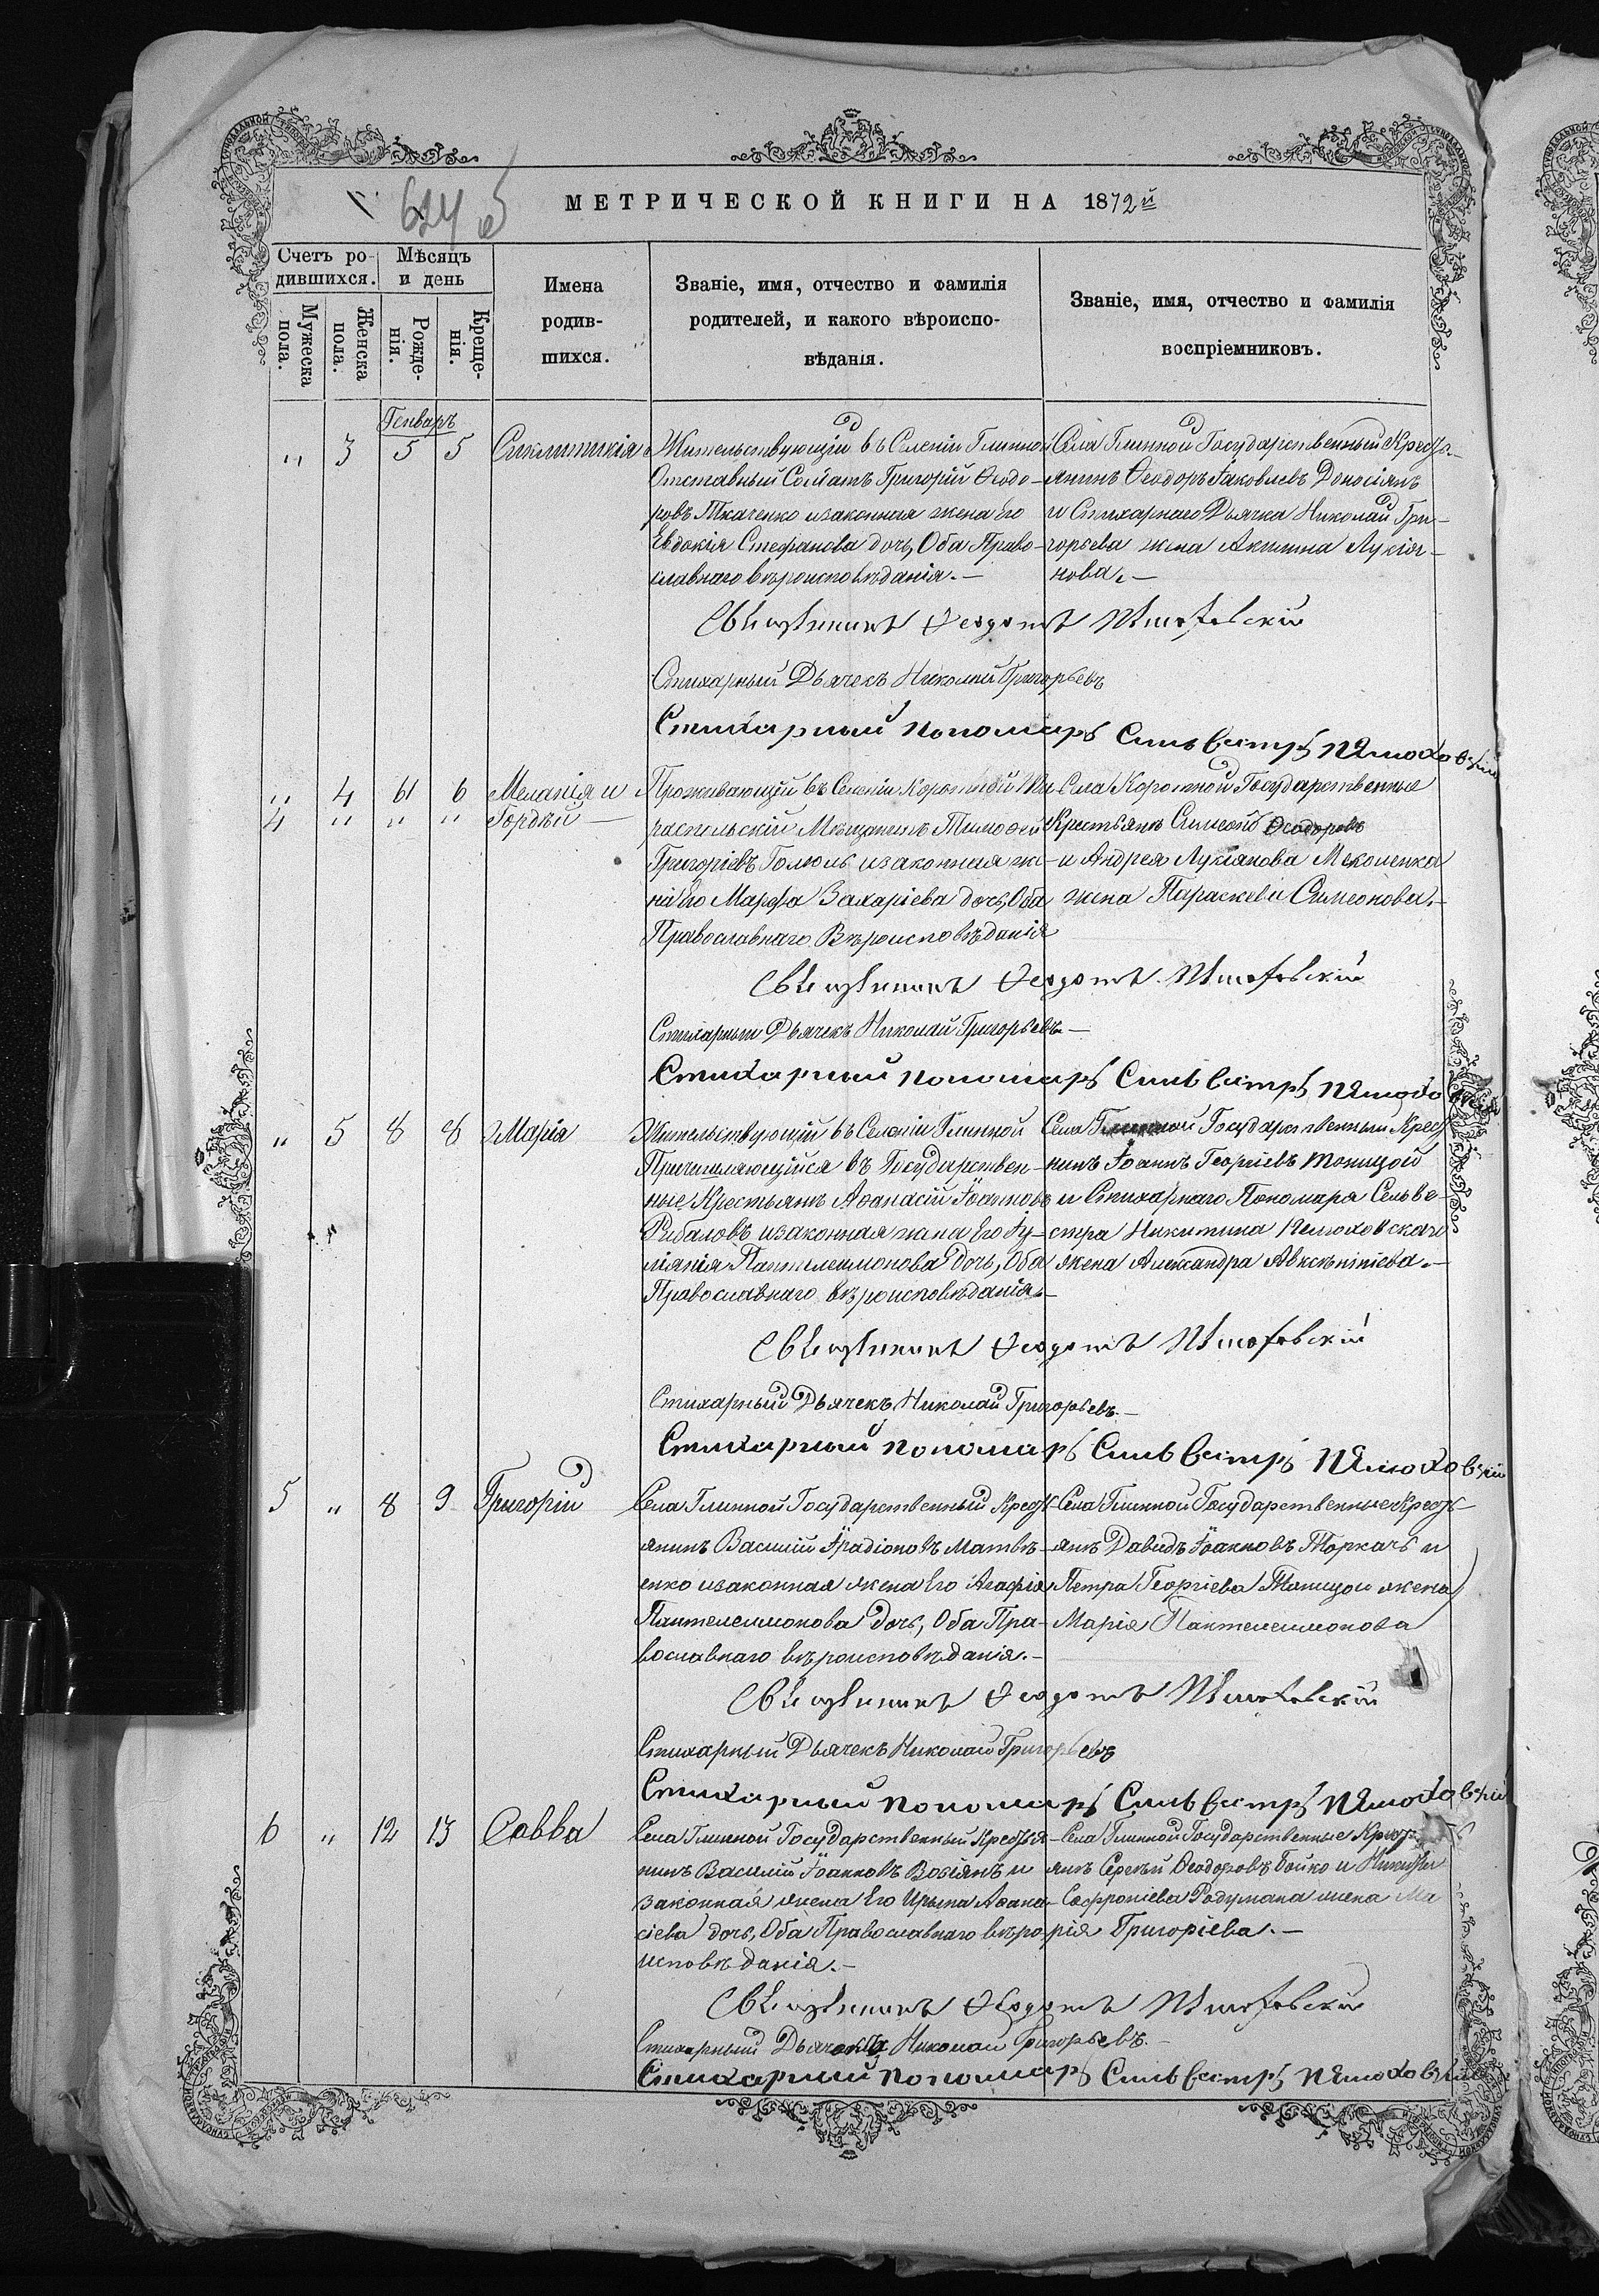 624 об
МЕТРИЧЕСКОЙ КНИГИ НА 1872й
Счетъ ро-
дившихся.
Мѣсяцъ
и день
Мужеска
пола.
Женска
пола.
Рожде-
нія.
Креще-
нія.
Имена
родив-
шихся.
Званіе, имя, отчество и фамилія
родителей, и какого вѣроиспо-
вѣданія.
Званіе, имя, отчество и фамилія
воспріемниковъ.
Генварь
" 3 5 5 Синклитикія
Жительствующій въ Селеніи Глинной
Отставный Солдатъ Григорій Ѳеодо-
ровъ Ткаченко изаконная жена Его
Евдокія Стефанова дочь, Оба Право-
славнаго вѣроисповѣданія.-
Села Глинной Государственный Кресть-
янинъ Ѳеодоръ Іаковлевъ Доносіянъ
и Стихарнаго Дьячка Николай Гри-
горьева жена Акилина Лукія-
нова.-
Священникъ Ѳеодотъ
Стихарный Дьячекъ Николай Григорьевъ
Стихарный пономарь Сильвестръ
" 4 6 6 Меланія и
4 " " " Гордѣй
Проживающій въ Селеніи Коротной Ти-
распольскій Мещанинъ Тимоѳей
Григоріевъ Голюль изаконная же-
на Его Марфа Захаріева дочь, Оба
Православнаго Вѣроисповѣданія
Села Коротной Государственные
Крестьянъ Симеонъ Ѳеодоровъ
и Андрея Лукіанова Маколенка
жена Параскева Симеонова.-
Священникъ Ѳеодотъ
Стихарный Дьячекъ Николай Григорьевъ.-
Стихарный пономарь Сильвестръ
" 5 8 8 Марія
Жительствующій въ Селеніи Глинной
Причисляющійся въ Государствен-
ные Крестьянъ Аѳанасій
Рибаловъ изаконная жена Его Іу-
ліянія Пантелеимонова дочь, Оба
Православнаго вѣроисповѣданія.-
Села Глинной Государственный Крест
нинъ Іоаннъ Георгіевъ Топицой
и Стихарнаго Пономаря Сельве-
стра Никитина
жена Александра Авксентіева.-
Священникъ Ѳеодотъ
Стихарный Дьячекъ Николай Григорьевъ.-
Стихарный пономарь Сильвестръ
5 " 8 9 Григорій
Села Глинной Государственный Кресть-
янинъ Василій Ирадіоновъ Матвѣ-
енко изаконная жена Его Агафія
Пантелеимонова дочь, Оба Пра-
вославнаго вѣроисповѣданія.-
Села Глинной Государственные Кресть-
янъ Давидъ Іоанновъ Торкачъ и
Петра Георгіева Топицои жена
Марія Пантелеимонова
Священникъ Ѳеодотъ
Стихарный Дьячекъ Николай Григорьевъ
Стихарный пономарь Сильвестръ
6 " 12 13 Савва
Села Глинной Государственный Крестья-
нинъ Василій Іоанновъ Восіянъ и
законная жена Его Ирына Аѳана-
сіева дочь, Оба Православнаго вѣро-
исповѣданія.-
Села Глинной Государственные Кресть
янъ Сергѣй Ѳеодоровъ Бойко и
Софроніева Радумана жена Ма
рія Григоріева.-
Священникъ Ѳеодотъ
Стихарный Дьячекъ Николай Григорьевъ.-
Стихарный пономарь Сильвестръ